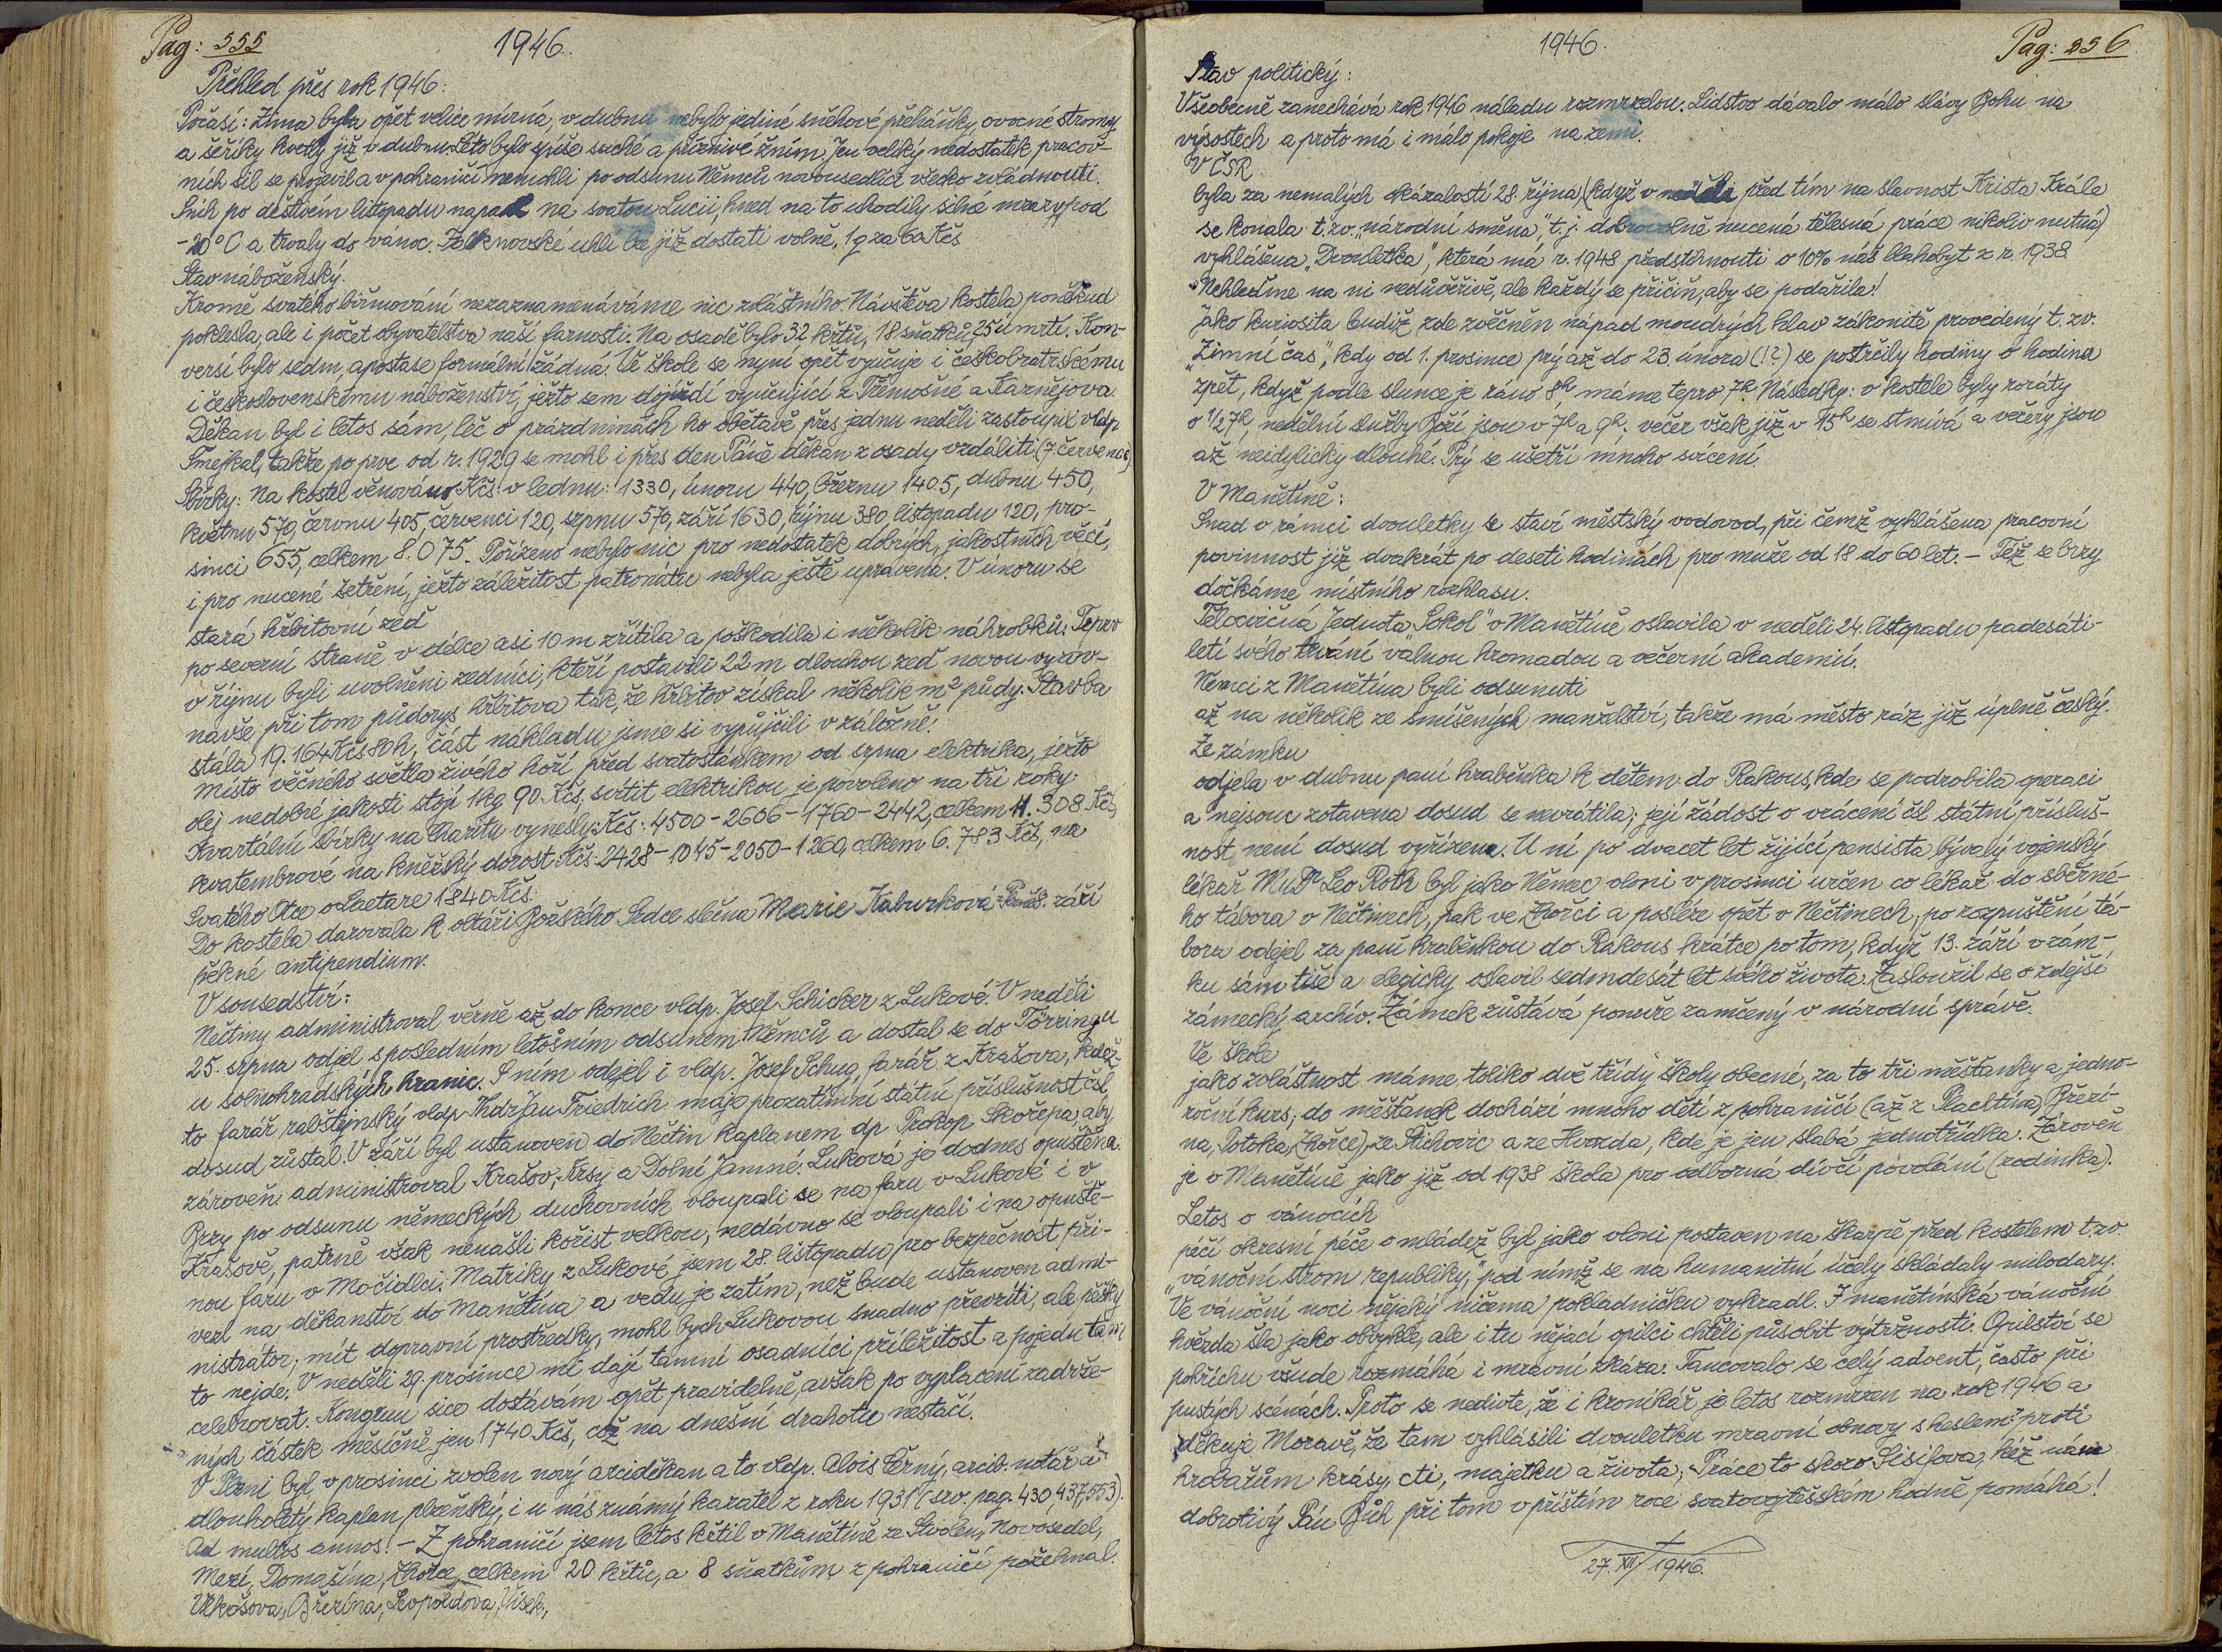 Pag: 555
1946.
Přehled přes rok 1946:
Počasí: Zima byla opět velice mírná, v dubnu nebylo jediné sněhové přeháňky, ovocné stromy
a šeříky kvetly již v dubnu. Léto bylo spíše suché a příznivé žním. Jen veliký nedostatek pracov-
ních sil se projevil a v pohraničí nemohli po odsunu Němců novousedlíci všecko zvládnouti.
Sníh po deštivém listopadu napadl na svatou Lucii, hned na to uhodily silné mrazy pod
-20°C a trvaly do vánoc. Falknovské uhlí lze již dostati volně, 1q za 60 Kčs
Stav náboženský.
Kromě svatého biřmování nezaznamenáváme nic zvláštního. Návštěva kostela poněkud
poklesla, ale i počet obyvatelstva naší farnosti. Na osadě bylo 32 křtů, 18 sňatků, 25 úmrtí. Kon-
versí bylo sedm, apostase formální žádná. Ve škole se nyní opět vyučuje i českobratrskému
i československému náboženství, ježto sem dojíždí vyučující z Třemošné a Žarnějova.
Děkan byl i letos sám, leč o prázdninách ho obětavě přes jednu neděli zastoupil vldp
Šmejkal, takže po prve od r. 1929 se mohl i přes den Páně děkan z osady vzdáliti. (7. července)
Sbírky: Na kostel věnováno Kčs: v lednu: 1330, únoru 440, březnu 1405, dubnu 450,
květnu 570, červnu 405, červenci 120, srpnu 570, září 1630, říjnu 380, listopadu 120, pro-
sinci 655, celkem 8.075. Pořízeno nebylo nic pro nedostatek dobrých, jakostních věcí,
i pro nucené šetření, ježto záležitost patronátu nebyla ještě upravena. V únoru se
stará hřbitovní zeď
po severní straně v délce asi 10 m zřítila a poškodila i několik náhrobků. Teprv
v říjnu byli uvolněni zedníci, kteří postavili 22 m dlouhou zeď novou vyrov-
návše při tom půdorys hřbitova tak, že hřbitov získal několik m² půdy. Stavba
stála 19.164 Kčs 80 h, část nákladu jsme si vypůjčili v záložně.
Místo věčného světla živého hoří před svatostánkem od srpna elektrika, ježto
olej nedobré jakosti stojí 1kg 90 Kčs, svítit elektrikou je povoleno na tři roky.
Kvartální sbírky na Charitu vynesly Kčs: 4500 - 2606 - 1760 - 2442, celkem 11.308 Kčs,
kvatembrové na kněžský dorost Kčs: 2428 - 1045 - 2050 - 1260, celkem 6.783 Kčs, na
Svatého Otce o Laetare 1840 Kčs.
Do kostela darovala k oltáři Božského Srdce slečna Marie Kaburková 8. září
pěkné antipendium.
V sousedství:
Nečtiny administroval věrně až do konce vldp. Josef Schicker z Lukové. V neděli
25. srpna odjel s posledním letošním odsunem Němců a dostal se do Törringu
u solnohradských hranic. S ním odejel i vldp. Josef Schug, farář z Krašova, kdež-
to farář rabštejnský vldp ThdrJan Friedrich maje prozatímní státní příslušnost čsl.
dosud zůstal. V září byl ustanoven do Nečtin kaplanem dp Prokop Skořepa, aby
zároveň administroval Krašov, Krsy a Dolní Jamné. Luková je dodnes opuštěna.
Brzy po odsunu německých duchovních vloupali se na faru v Lukové i v
Krašově, patrně však nenašli kořist velkou, nedávno se vloupali i na opuště-
nou faru v Močidlci. Matriky z Lukové jsem 28. listopadu pro bezpečnost při-
vezl na děkanství do Manětína a vedu je zatím, než bude ustanoven admi-
nistrátor; mít dopravní prostředky, mohl bych Lukovou snadno převzíti, ale pěšky
to nejde. V neděli 29. prosince mi dají tamní osadníci příležitost a pojedu tam
celebrovat. Kongruu sice dostávám opět pravidelně, avšak po vyplacení zadrže-
ných částek měsíčně jen 1740 Kčs, což na dnešní drahotu nestačí.
V Plzni byl v prosinci zvolen nový arciděkan a to vldp. Alois Černý, arcib. notář a
dlouholetý kaplan plzeňský, i u nás známý kazatel z roku 1931 (srov. pag. 430, 437, 553).
Ad multos annos! - Z pohraničí jsem letos křtil v Manětíně ze Stvolen, Novosedel,
Mezí, Domašína, Zhořce, celkem 20 křtů, a 8 sňatkům z pohraničí požehnal.
Vlkošova, Březína, Leopoldova, Vísek,
1946.
Pag: 556
Stav politický:
Všeobecně zanechává rok 1946 náladu rozmrzelou. Lidstvo dávalo málo slávy Bohu na
výsostech a proto má i málo pokoje na zemi.
V ČSR
byla za nemalých okázalostí 28. října (když v neděli před tím na slavnost Krista Krále
se konala t. zv. „národní směna", t. j. dobrovolně nucená tělesná práce nikoliv nutná)
vyhlášena „Dvouletka", která má r. 1948 předstihnouti o 10% náš blahobyt z r. 1938.
Nehleďme na ni nedůvěřivě, ale každý se přičiň, aby se podařila!
Jako kuriosita budiž zde zvěčněn nápad moudrých hlav zákonitě provedený t. zv.
„Zimní čas", kdy od 1. prosince prý až do 23. února (!?) se postrčily hodiny o hodinu
zpět, když podle slunce je ráno 8h máme teprv 7h. Následky: v kostele byly roráty
o 1/2 7h, nedělní služby Boží jsou v 7h a 9h. večer však již v 15h se stmívá a večery jsou
až neidylicky dlouhé. Prý se ušetří mnoho svícení.
V Manětíně:
Snad v rámci dvouletky se staví městský vodovod, při čemž vyhlášena pracovní
povinnost již dvakrát po deseti hodinách pro muže od 18 do 60 let. - Též se brzy
dočkáme místního rozhlasu.
Tělocvičná Jednota „Sokol" v Manětíně oslavila v neděli 24. listopadu padesáti-
letí svého trvání valnou hromadou a večerní akademií.
Němci z Manětína byli odsunuti
až na několik ze smíšených manželství, takže má město ráz již úplně český.
Ze zámku
odjela v dubnu paní hraběnka k dětem do Rakous, kde se podrobila operaci
a nejsouc zotavena dosud se nevrátila; její žádost o vrácení čsl státní přísluš-
nost není dosud vyřízena. U ní po dvacet let žijící pensista bývalý vojenský
lékař MuDr Leo Roth byl jako Němec vloni v prosinci určen co lékař do sběrné-
ho tábora v Nečtinech, pak ve Zhořci a posléze opět v Nečtinech, po rozpuštění tá-
bora odejel za paní hraběnkou do Rakous krátce po tom, když 13. září v zám-
ku sám tiše a elegicky oslavil sedmdesát let svého života. Zasloužil se o zdejší
zámecký archiv. Zámek zůstává ponuře zamčený v národní správě.
Ve škole
jako zvláštnost máme toliko dvě třídy školy obecné, za to tři měšťanky a jedno-
roční kurs; do měšťanek dochází mnoho dětí z pohraničí (až z Plachtína, Březí-
na, Potoka, Zhořce), ze Štichovic a ze Hvozda, kde je jen slabá jednotřídka. Zároveň
je v Manětíně jako již od 1938 škola pro odborná dívčí povolání (rodinka).
Letos o vánocích
péčí okresní péče o mládež byl jako vloni postaven na škarpě před kostelem t. zv.
„vánoční strom republiky," pod nímž se na humanitní účely skládaly milodary.
Ve vánoční noci nějaký ničema pokladničku vykradl. I manětínská vánoční
hvězda šla jako obvykle, ale i tu nějací opilci chtěli působit výtržnosti. Opilství se
pohříchu všude rozmáhá i mravní zkáza. Tancovalo se celý advent, často při
pustých scénách. Proto se nedivte, že i kronikář je letos rozmrzen na rok 1946 a
děkuje Moravě, že tam vyhlásili dvouletku mravní obnovy s heslem: proti
hrobařům krásy, cti, majetku a života; Práce to skoro Sisifova, kéž nám
dobrotivý Pán Bůh při tom v příštím roce svatovojtěšském hodně pomáhá!
27. XII. 1946.